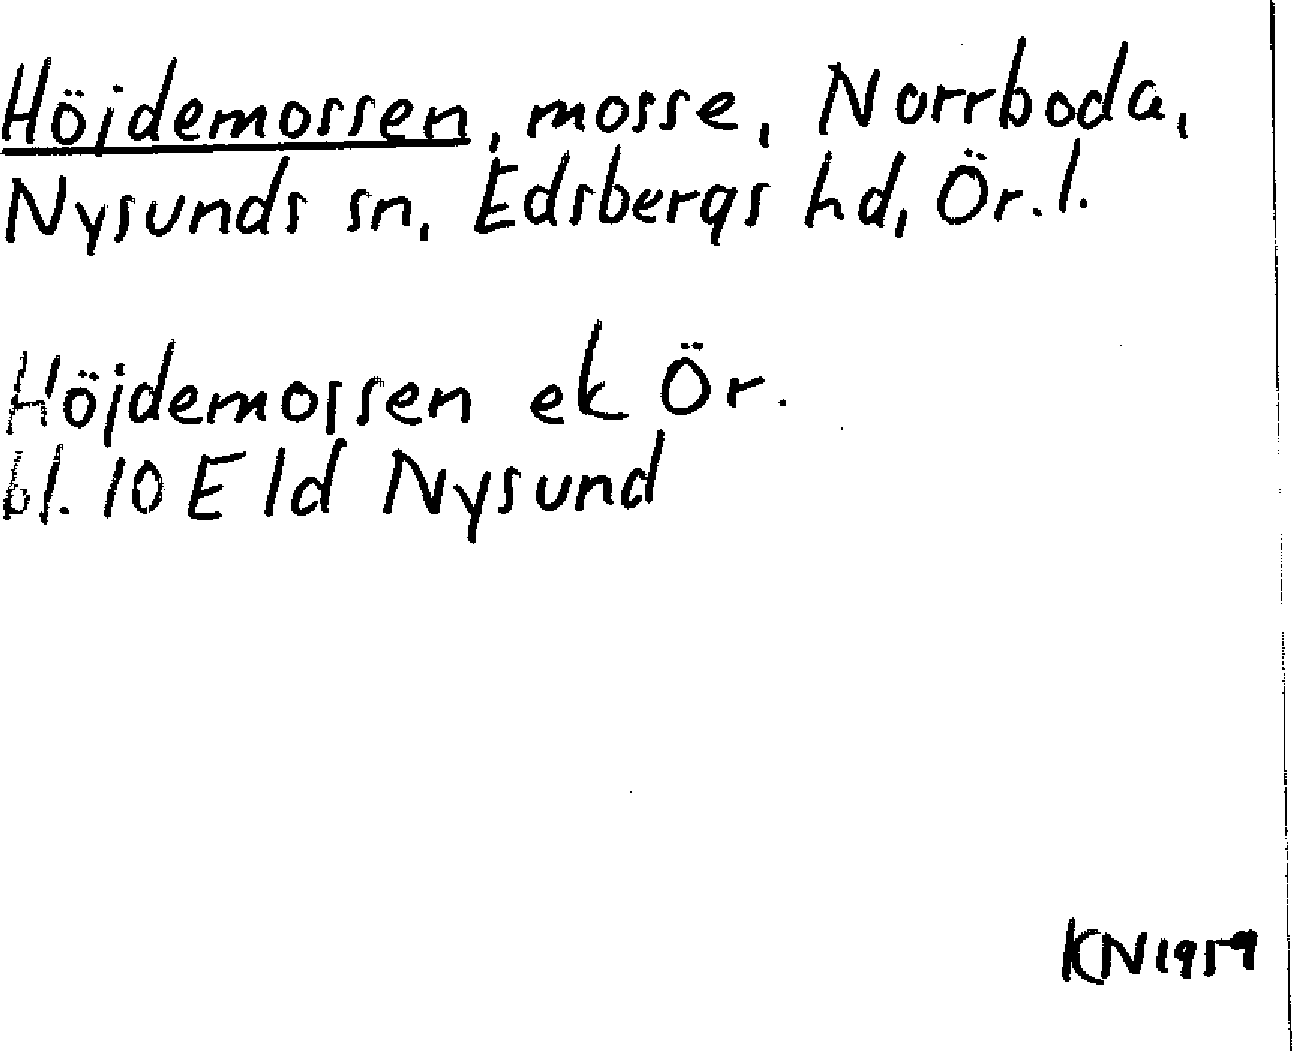 Höjdemossen, mosse, Norrboda,
Nysunds sn, Edsbergs hd, Ör. l.
Höjdemossen ek Ör.
bl. 10 E 1d Nysund
KN 1959